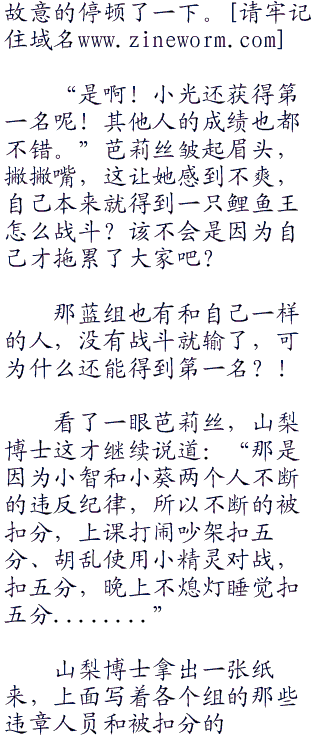 故意的停顿了一下。[请牢记
住域名www.zineworm.com]
“是啊！小光还获得第
一名呢！其他人的成绩也都
不错。”芭莉丝皱起眉头，
撇撇嘴，这让她感到不爽，
自己本来就得到一只鲤鱼王
怎么战斗？该不会是因为自
己才拖累了大家吧？
那蓝组也有和自己一样
的人，没有战斗就输了，可
为什么还能得到第一名？！
看了一眼芭莉丝，山梨
博士这才继续说道：“那是
因为小智和小葵两个人不断
的违反纪律，所以不断的被
扣分，上课打闹吵架扣五
分、胡乱使用小精灵对战，
扣五分，晚上不熄灯睡觉扣
五分........”
山梨博士拿出一张纸
来，上面写着各个组的那些
违章人员和被扣分的